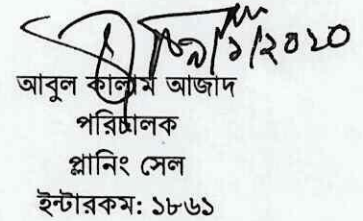 ৯/১/২০২০
আবুল কালাম আজাদ
পরিচালক
প্লানিং সেল
ইন্টারকম: ১৮৬১